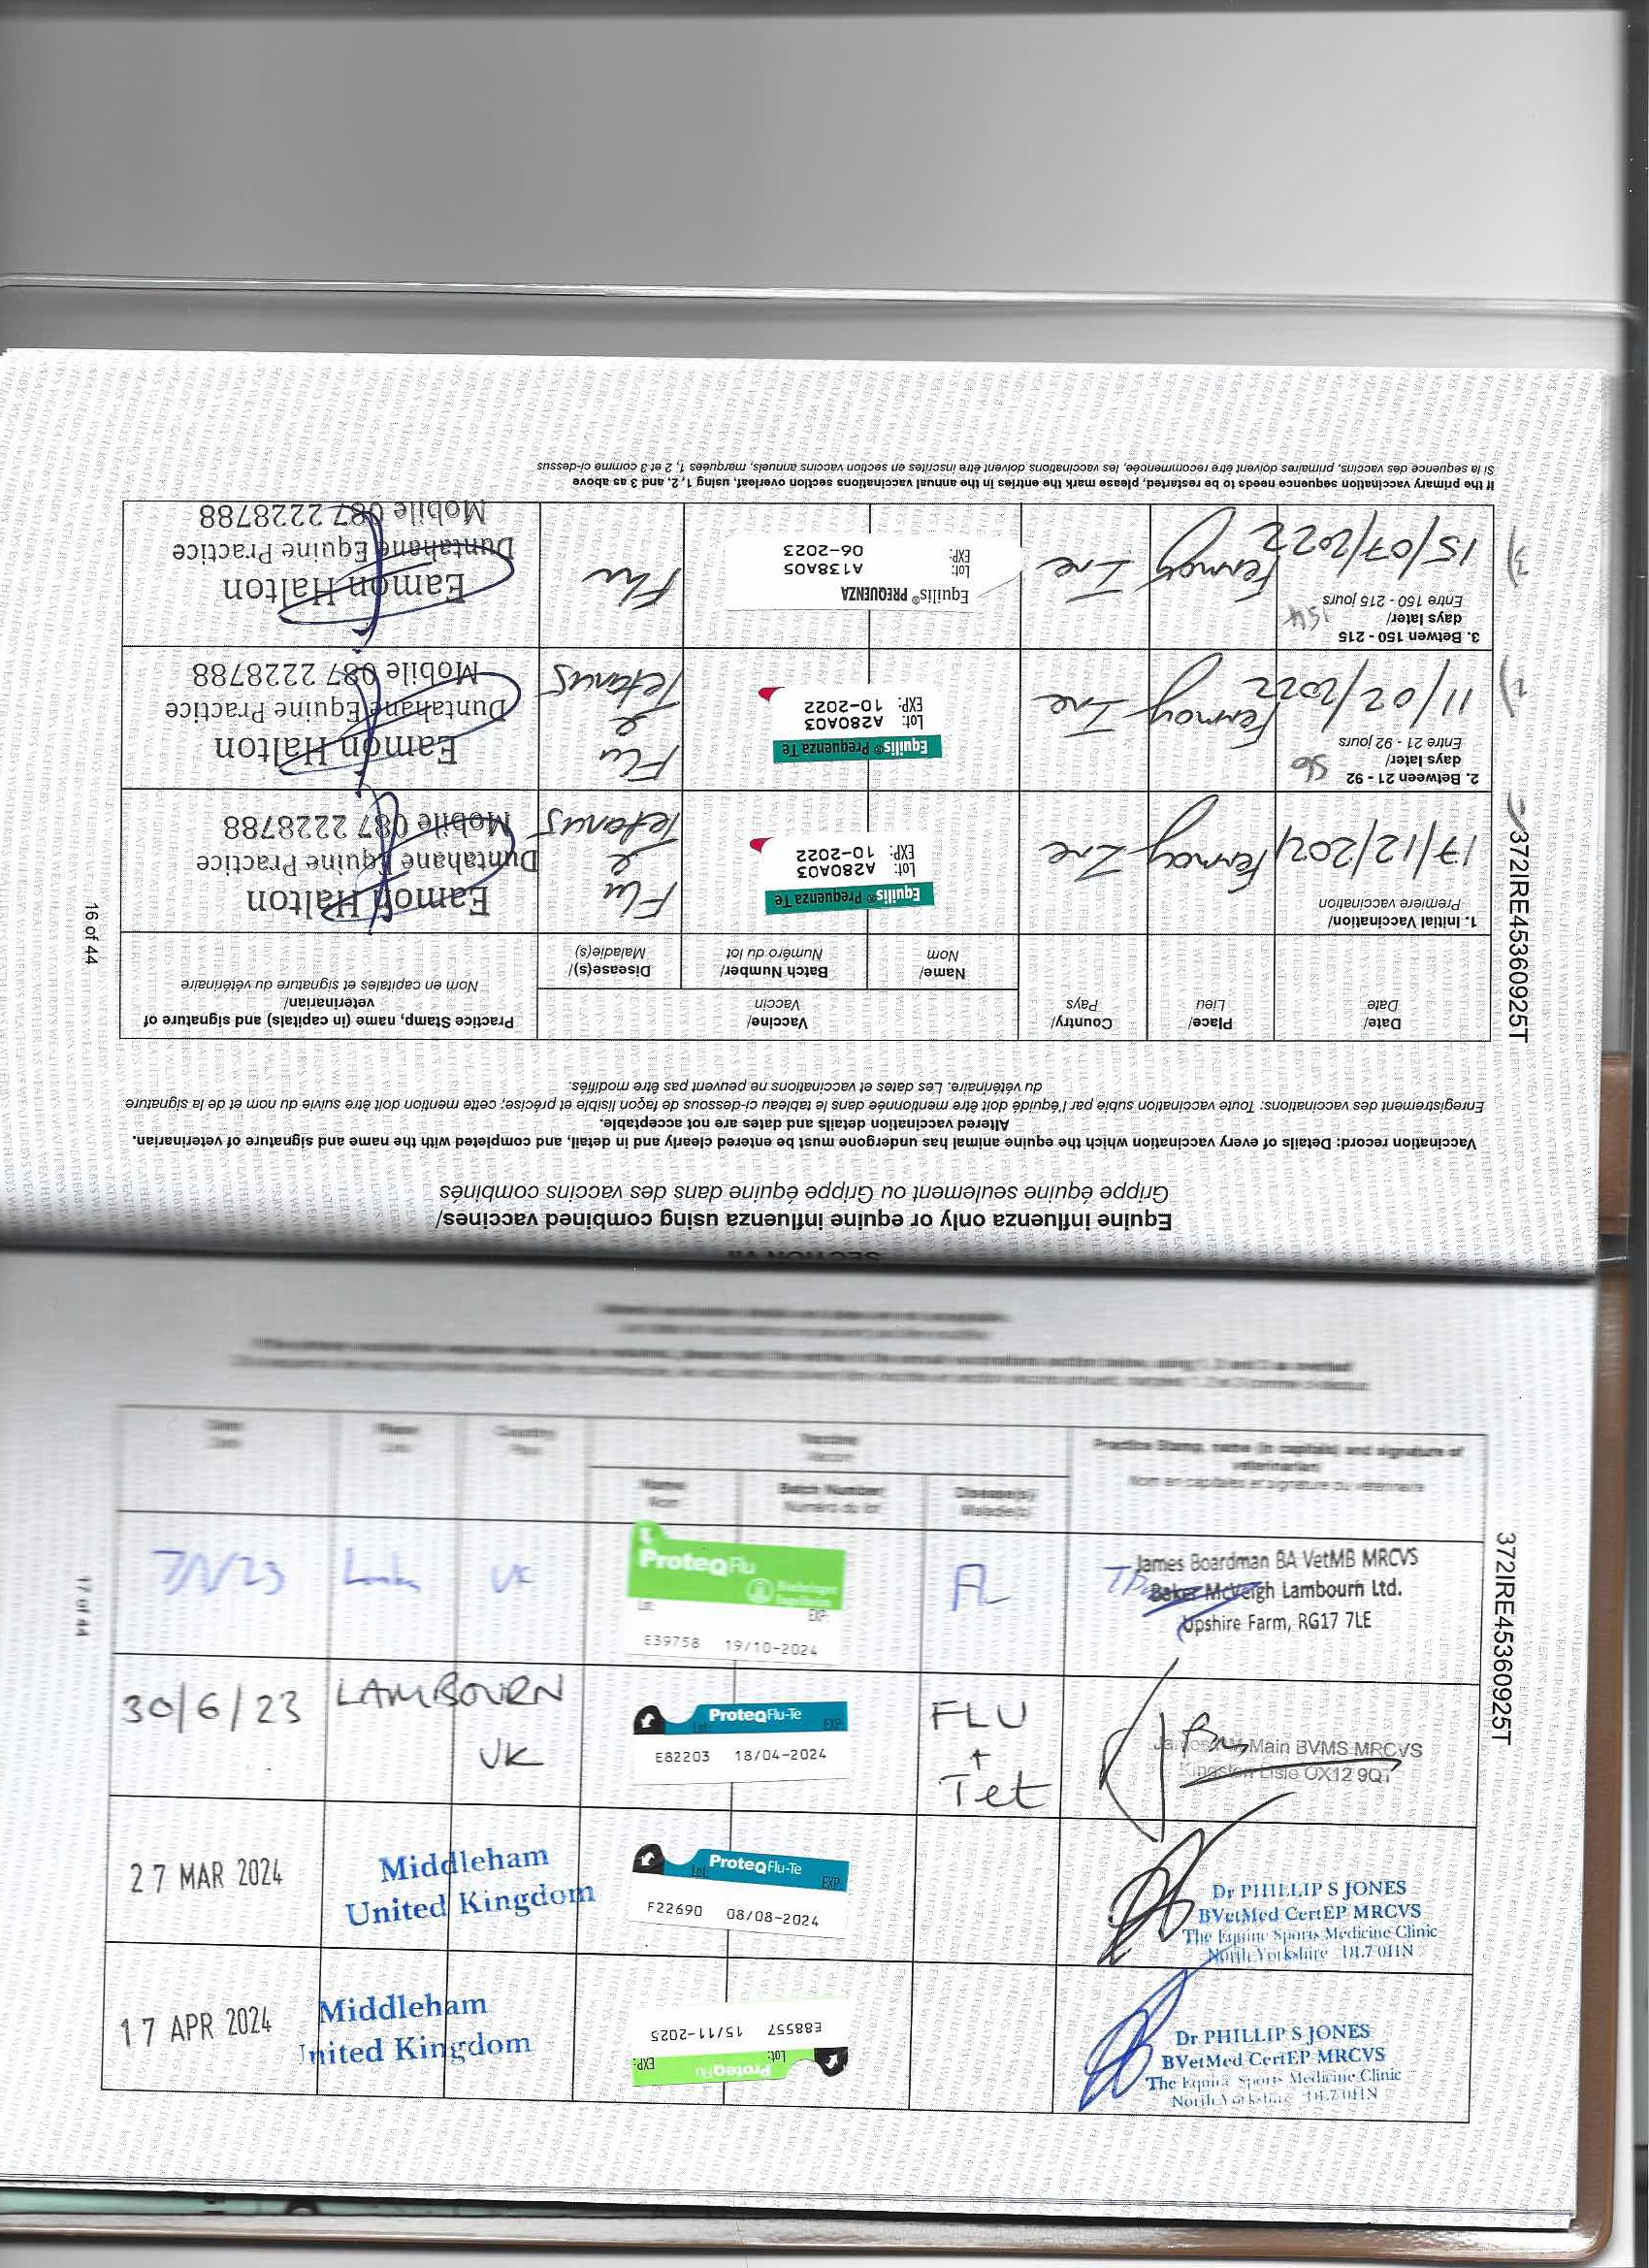 Equine influenza only or equine influenza using combined vaccines/
Grippe équine seulement ou Grippe équine dans des vaccins combinés
Vaccination record: Details of every vaccination which the equine animal has undergone must be entered clearly and in detail, and completed with the name and signature of veterinarian.
Altered vaccination details and dates are not acceptable.
Enregistrement des vaccinations: Toute vaccination subie par l'équidé doit être mentionnée dans le tableau ci-dessous de façon lisible et précise; cette mention doit être suivie du nom et de la signature
du vétérinaire. Les dates et vaccinations ne peuvent pas être modifiés.
Date/ Date
Place/ Lieu
Country/ Pays
Vaccine/ Vaccin
Name/ Nom
Batch Number/ Numéro du lot
Disease(s)/ Maladie(s)
Practice Stamp, name (in capitals) and signature of
veterinarian/
Nom en capitales et signature du vétérinaire
1. Initial Vaccination/
Première vaccination
17/12/2021 Fermoy Ire
Equilis® Prequenza Te
Lot: A280A03
EXP: 10-2022
Flu
&
Tetanus
Eamon Halton
Duntahane Equine Practice
Mobile 087 2228788
2. Between 21 - 92
days later/
Entre 21 - 92 jours
56
11/02/2022 Fermoy Ire
Equilis® Prequenza Te
Lot: A280A03
EXP: 10-2022
Flu
&
Tetanus
Eamon Halton
Duntahane Equine Practice
Mobile 087 2228788
3. Betwen 150 - 215
days later/
Entre 150 - 215 jours
154
15/07/2022 Fermoy Ire
Equilis® PREQUENZA
Lot: A138A05
EXP: 06-2023
Flu
Eamon Halton
Duntahane Equine Practice
Mobile 087 2228788
If the primary vaccination sequence needs to be restarted, please mark the entries in the annual vaccinations section overleaf, using 1, 2, and 3 as above
Si la séquence des vaccins, primaires doivent être recommencée, les vaccinations doivent être inscrites en section vaccins annuels, marquées 1, 2 et 3 comme ci-dessus
372IRE45360925T
16 of 44
Practice Stamp, name (in capitals) and signature of
veterinarian/
Nom en capitales et signature du vétérinaire
Batch Number/
Numéro du lot
7/1/23 UK
ProteqFlu
Lot: EXP:
E39758 19/10-2024
James Boardman BA VetMB MRCVS
Baker McVeigh Lambourn Ltd.
Upshire Farm, RG17 7LE
30/6/23 LAMBOURN
UK
ProteqFlu-Te
Lot: EXP:
E82203 18/04-2024
FLU
+
Tet
Main BVMS MRCVS
Kingston Lisle OX12 9QT
27 MAR 2024
Middleham
United Kingdom
ProteqFlu-Te
Lot: EXP:
F22690 08/08-2024
Dr PHILLIP S JONES
BVetMed CertEP MRCVS
The Equine Sports Medicine Clinic
North Yorkshire DL7 0HN
17 APR 2024
Middleham
United Kingdom
ProteqFlu
Lot: EXP:
E88557 15/11-2025
Dr PHILLIP S JONES
BVetMed CertEP MRCVS
The Equine Sports Medicine Clinic
North Yorkshire DL7 0HN
372IRE45360925T
17 of 44